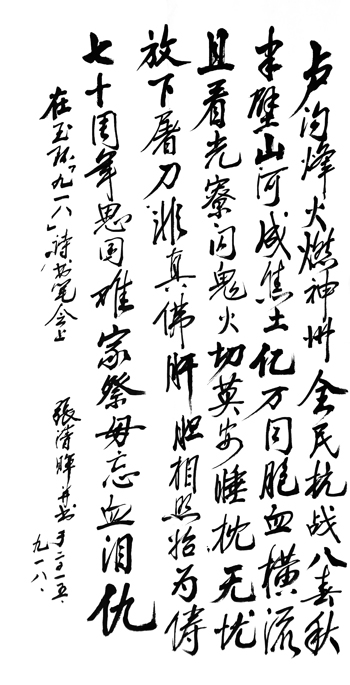 卢沟烽火燃神州全民抗战八春秋
半壁山河成焦土亿万同胞血横流
且看光寮闪鬼火切莫安睡枕无忧
放下屠刀非真佛肝胆相照始为俦
七十周年思国难家祭毋忘血泪仇
在玉环九一八诗书笔会上
张清晖并书于二〇一五、
九一八、